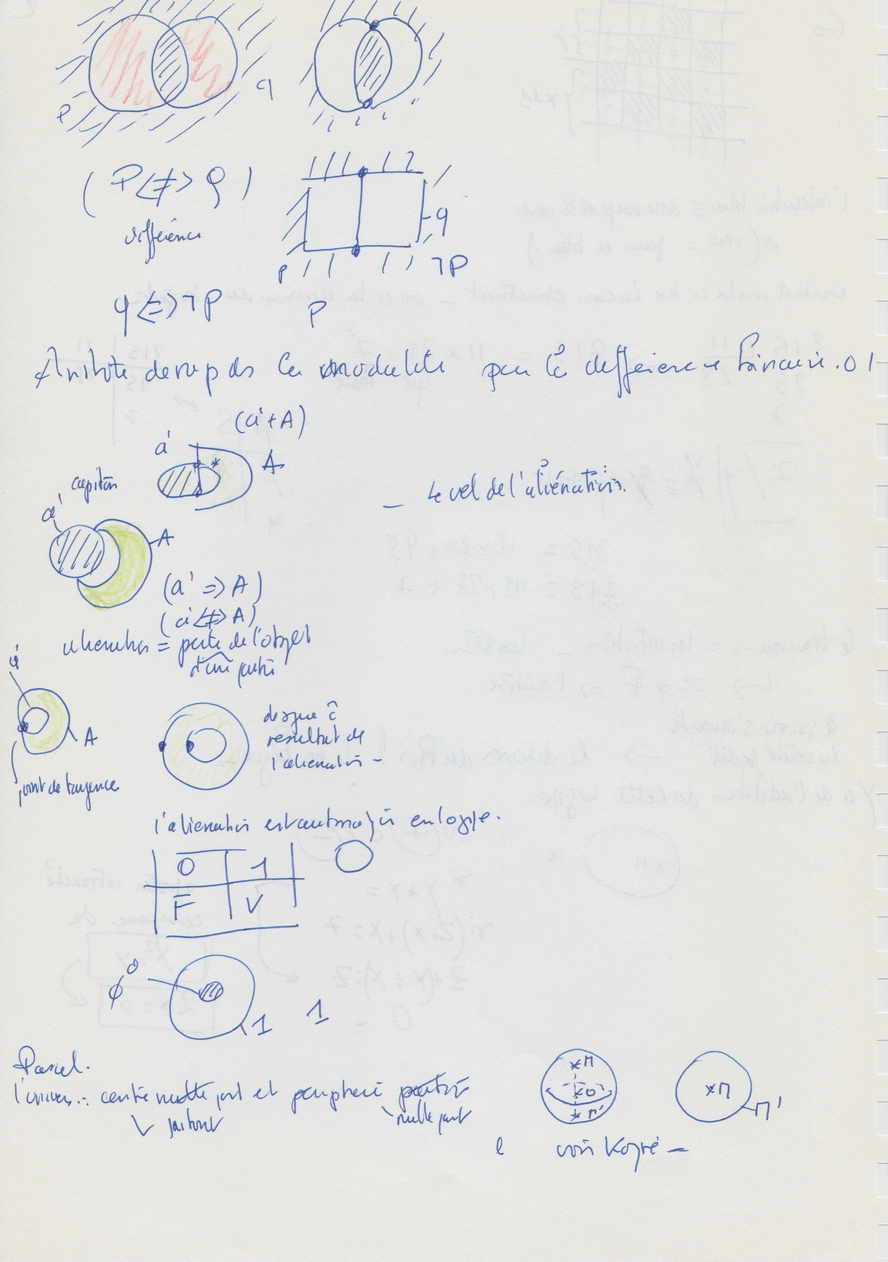 P q
(P <≢> q)
différence
q
P ¬P
q <≢> ¬P P
Aristote la modalité par la différence binaire. 0 1
(a'+A)
a' * A
a' capiton
A
– le vel de l'aliénation.
(a' => A)
(a' <≢> A)
aliénation = perte de l'objet
d'une partie
a'
A
point de tangence
disque
résultat de
l'aliénation –
l'aliénation est en logique.
0 1
F V
φ 0
1 1
Pascal.
l'univers : centre nulle part et périphérie partout
partout nulle part
×Π
×0
×Π'
×Π Π'
voir Koyré –